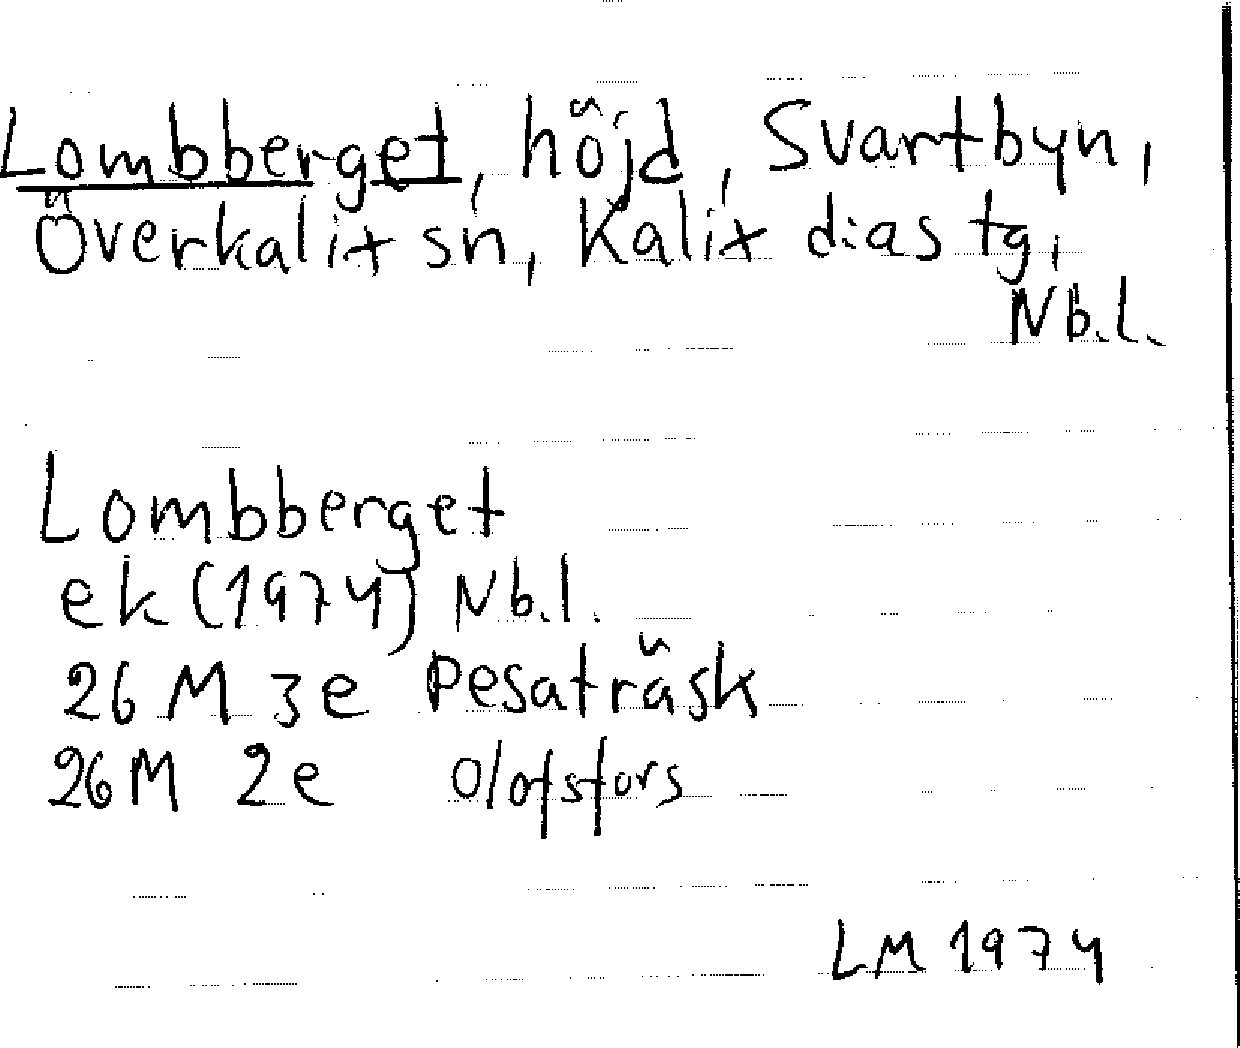 Lombberget, höjd, Svartbyn,
Överkalix sn, Kalix dias tg,
Nb.l.
Lombberget
ek (1974) Nb.l.
26 M 3e Pesaträsk
26M 2e Olofsfors
LM 1974